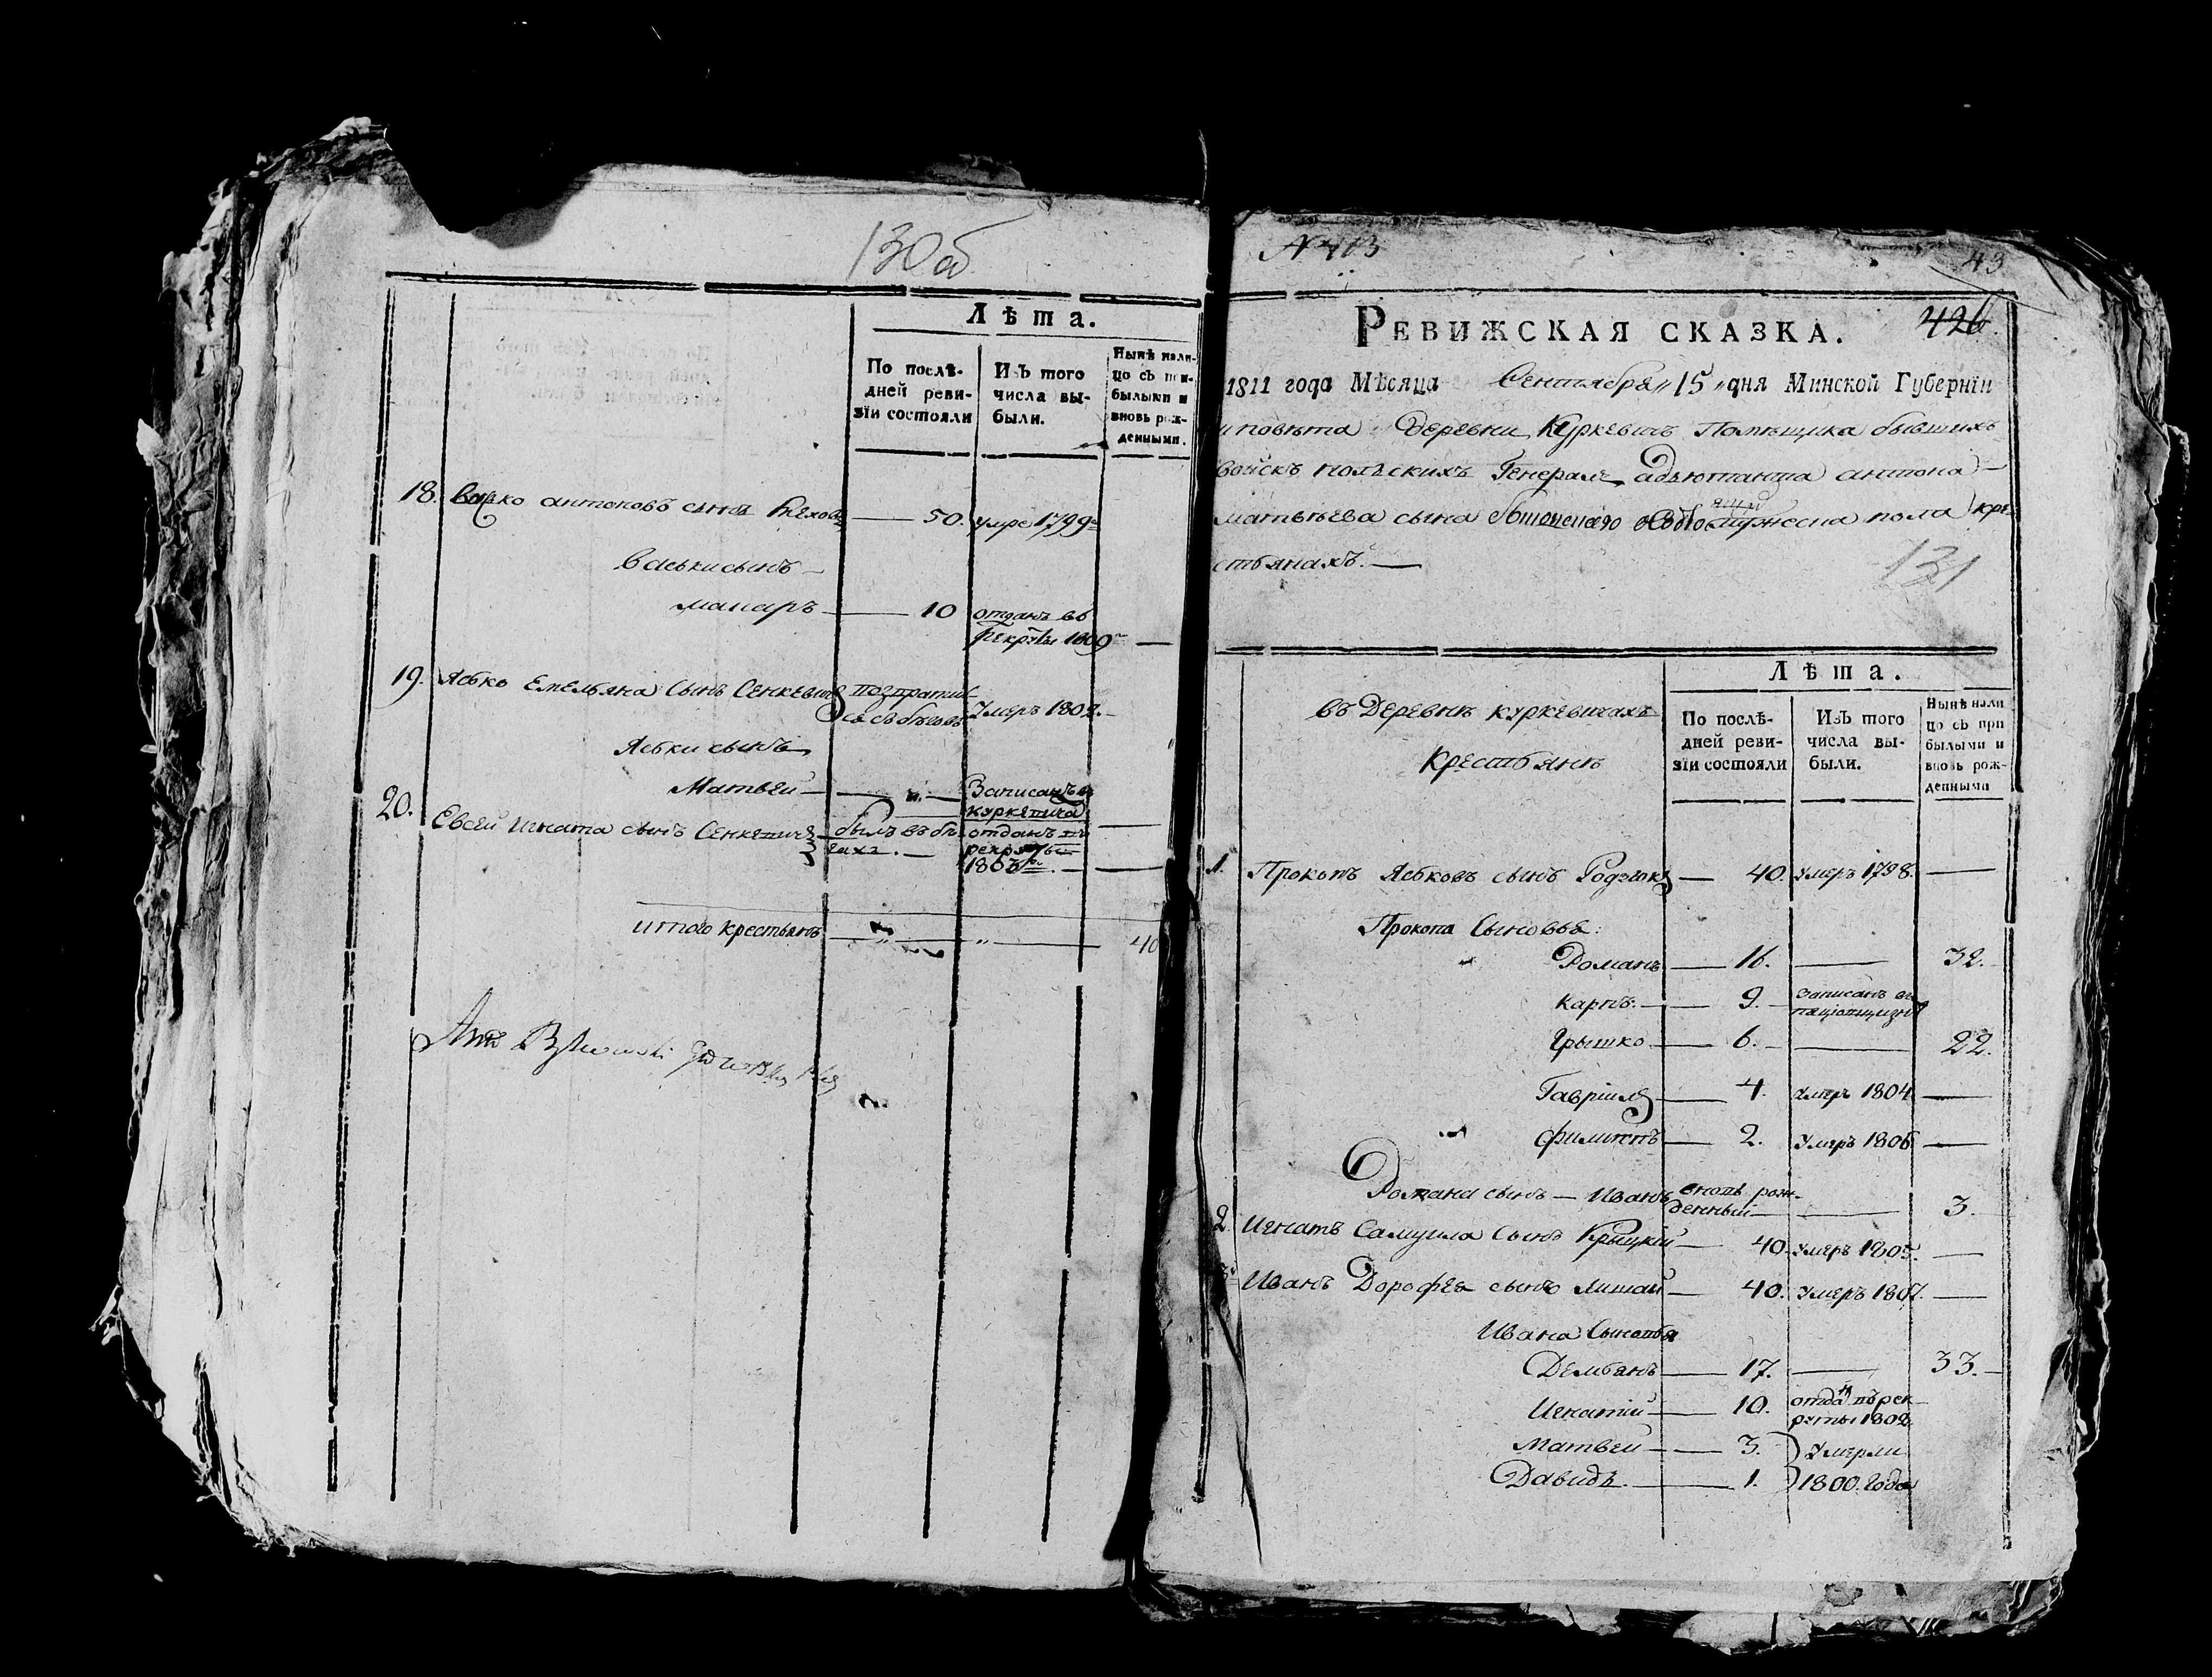 130об
Лѣта.
По послѣ-
дней реви-
зіи состояли
Изъ того
числа вы-
были.
Нынѣ нали-
цо съ при-
былыми и
вновь рож-
денными.
18. Васко антоновъ сынъ — 50. умре 1799
Васьки сынъ —
макаръ — 10 отданъ въ
рекруты 1809 —
19. Ясько Емельяна Сынъ Сенкевичъ
съ бѣговъ Умеръ 1802. —
Яськи сынъ
Матвей — „ — Записанъ в
куркевича
20. Евсей Игната сынъ Сенкевичъ былъ въ бѣ- отданъ въ
гахъ. — рекруты
1803 — —
итого крестьянъ — „ — „ — 40
N 413
43
Ревижская сказка. 426.
1811 года Мѣсяца Сентября „15 „дня Минской Губерніи
повѣта Деревни Куркевичъ Помѣщика бывшихъ
войскъ польскихъ Генералъ адъютанта антона —
матвѣева сына о мужеска пола кре-
стьянахъ. —
131
Лѣта.
въ Деревнѣ куркевичахъ
крестьянъ
По послѣ-
дней реви-
зіи состояли
Изъ того
числа вы-
были.
Нынѣ нали
цо съ при
былыми и
вновь рож-
денными
1. Прокопъ Яськовъ сынъ — 40. умеръ 1798. —
Прокопа Сыновья:
Романъ — 16. — 32.
карпъ. — 9. — записанъ въ
Грышко — 6. — — 22.
Гавріилъ — 4. умеръ 1804 —
филиппъ — 2. Умеръ 1806 —
Романа сынъ — Иванъ вновь рож-
денный — — 3.
2. Игнатъ Самуила Сынъ Крыцкій — 40. умеръ 1805. —
3. Иванъ Дорофея сынъ лишай — 40. Умеръ 1807. —
Ивана Сыновья
Демьянъ — 17. — 33. —
Игнатій — 10. отданъ въ рек-
руты 1802
Матвей — 3. } Умерли
Давидъ. — 1. } 1800. Года